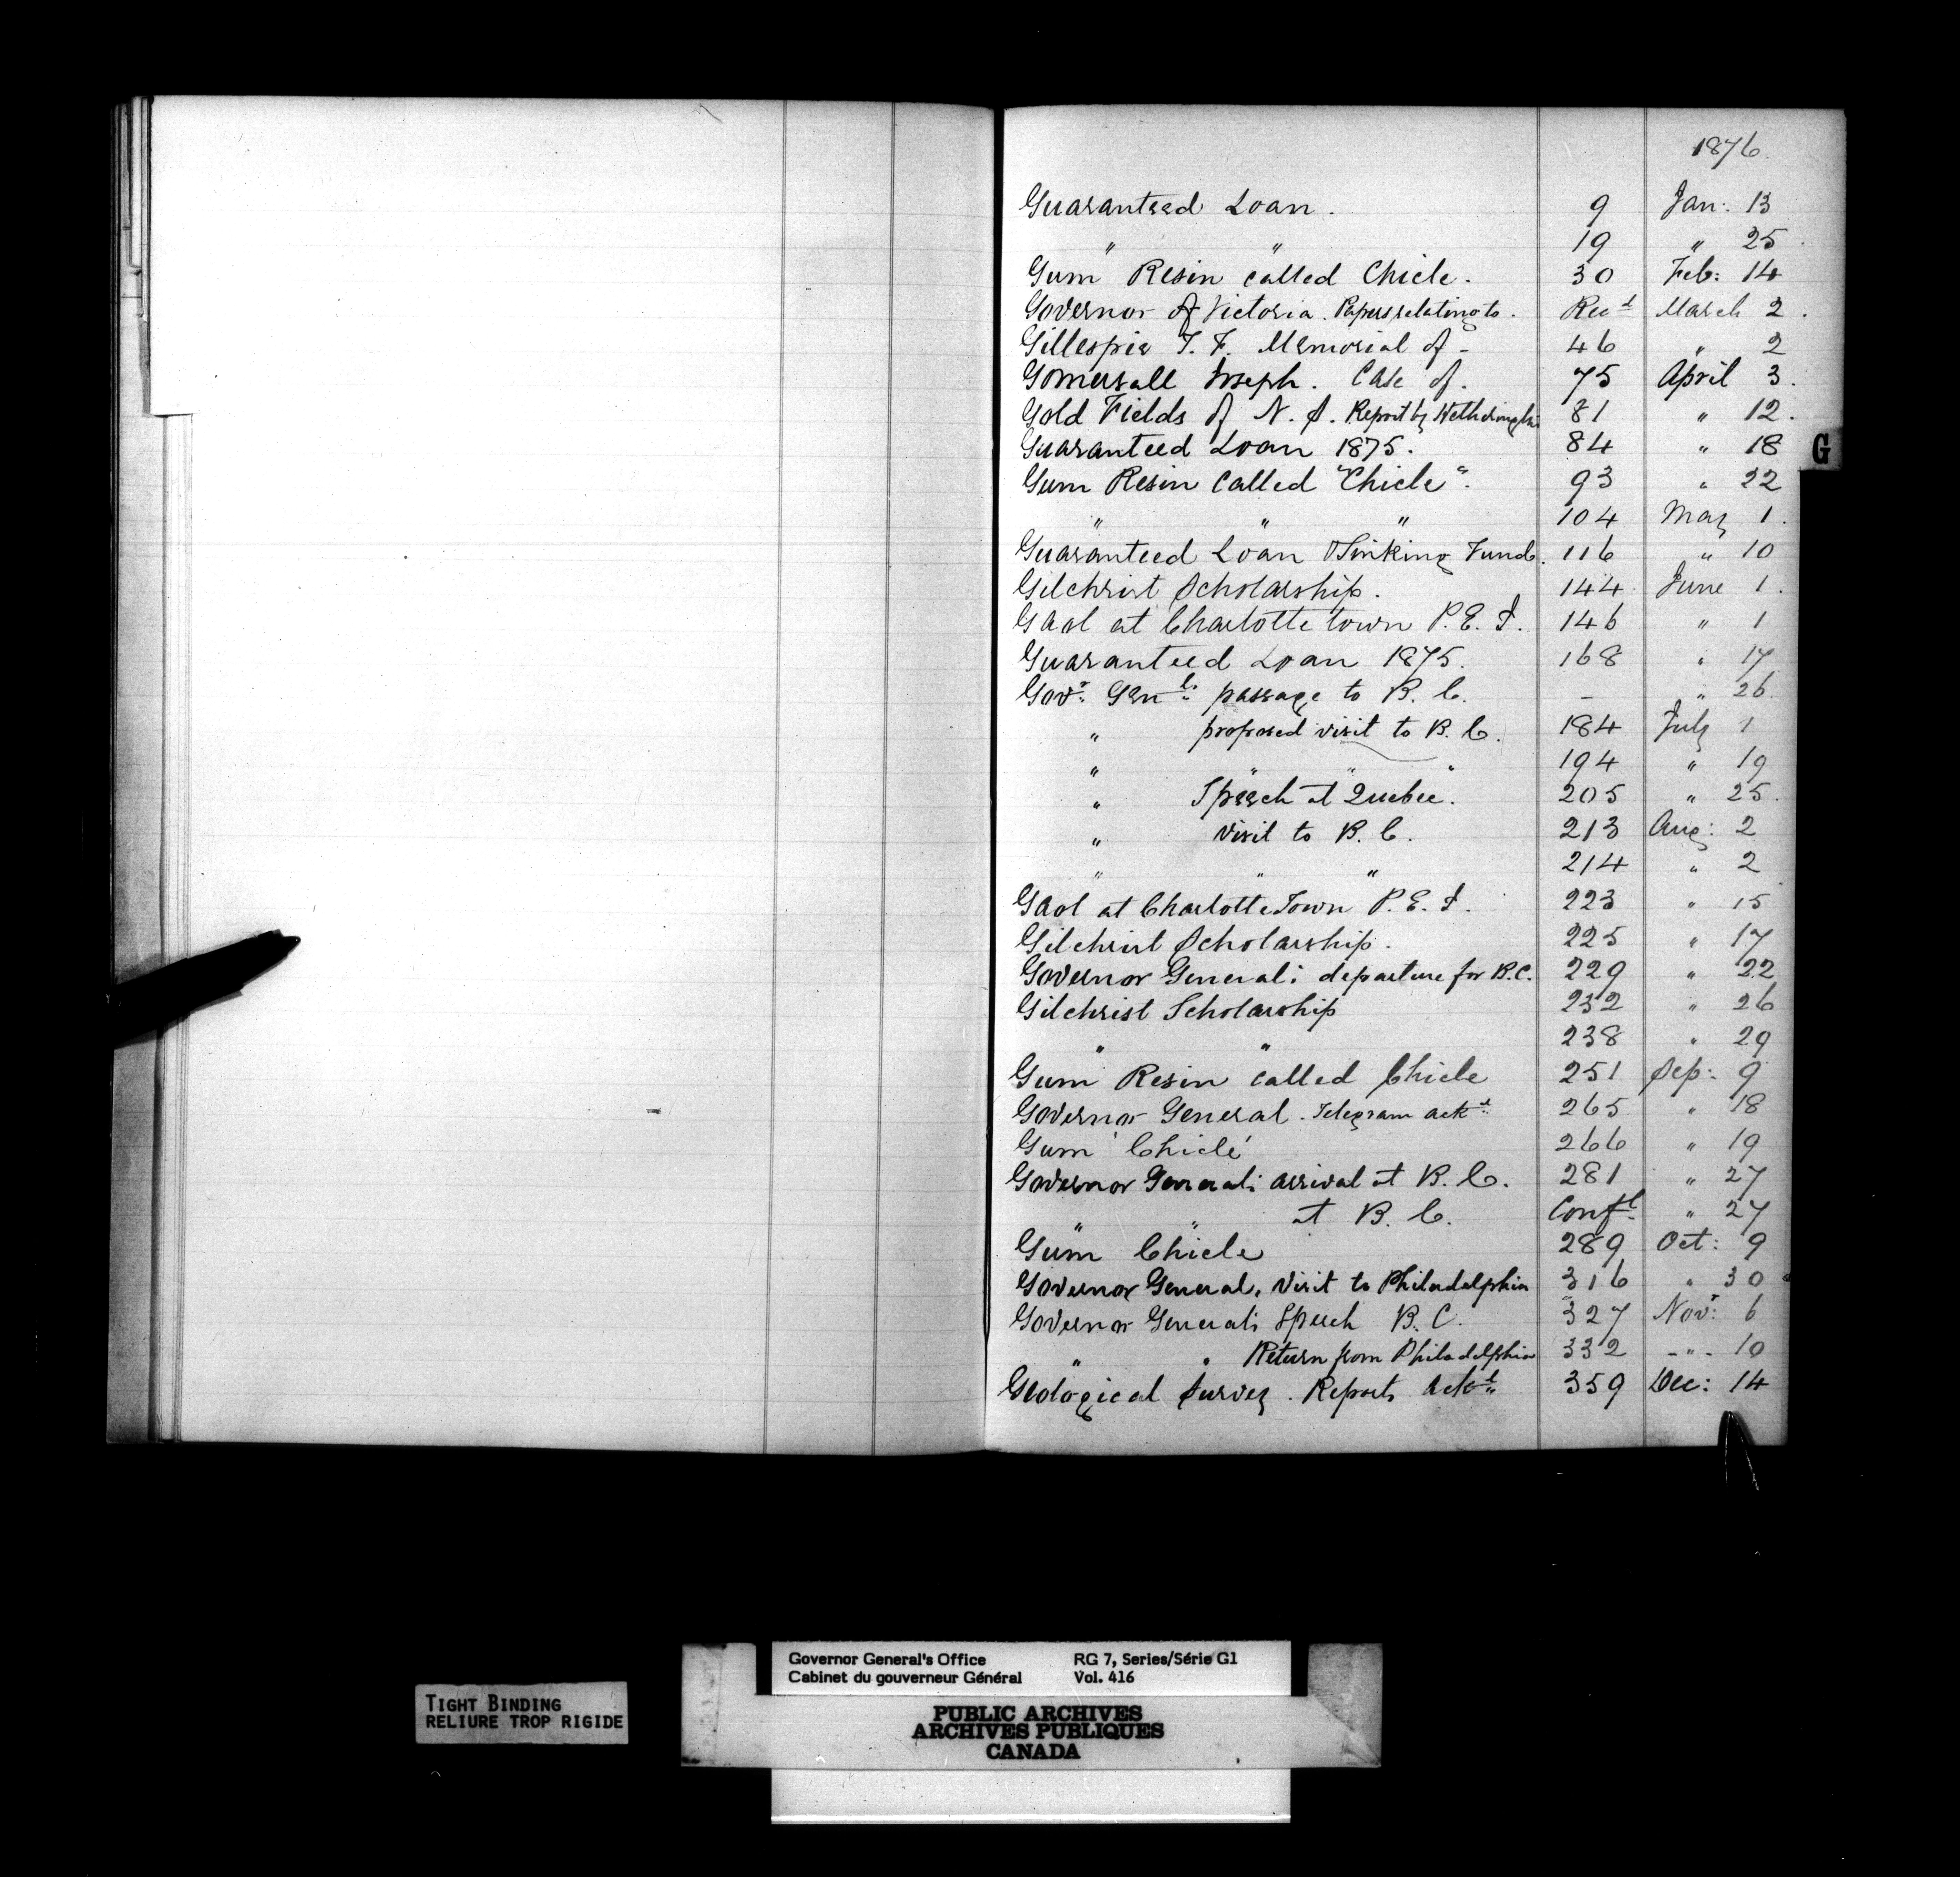 1876
Guaranteed Loan. 9 Jan: 13
" " 19 " 25
Gum Resin called Chicle. 30 Feb: 14
Governor of Victoria. Papers relating to. Recd March 2.
Gillespie T. F. Memorial of - 46 " 2
Gomersall Joseph. Case of. 75 April 3.
Gold Fields of N. S. Report by 81 " 12.
Guaranteed Loan 1875. 84 " 18
G
Gum Resin called "Chicle". 93 " 22
" " " 104 May 1.
Guaranteed Loan Sinking Fund. 116 " 10
Gilchrist Scholarship. 144 June 1.
Gaol at Charlotte town P. E. I. 146 " 1
Guaranteed Loan 1875. 168 " 17
Govr. Genl: passage to B. C. - " 26
" proposed visit to B. C. 184 July 1
" " " " 194 " 19
" Speech at Quebec. 205 " 25.
" visit to B. C. 213 Aug: 2
" " " 214 " 2
Gaol at Charlotte Town P. E. I. 223 " 15
Gilchrist Scholarship. 225 " 17
Governor General: departure for B.C. 229 " 22
Gilchrist Scholarship 232 " 26
" " 238 " 29
Gum Resin called Chicle 251 Sep: 9
Governor General. Telegram ackd: 265 " 18
Gum 'Chicle' 266 " 19
Governor Generals arrival at B. C. 281 " 27
" " at B. C. Confl " 27
Gum Chicle 289 Oct: 9
Governor General, visit to Philadelphia 316 " 30
Governor Generals Speech B. C. 327 Novr: 6
" " Return from Philadelphia 332 - " - 10
Geological Survey. Reports Ackd 359 Dec: 14
Governor General's Office RG 7, Series/Série G1
Cabinet du gouverneur Général Vol. 416
TIGHT BINDING
RELIURE TROP RIGIDE
PUBLIC ARCHIVES
ARCHIVES PUBLIQUES
CANADA